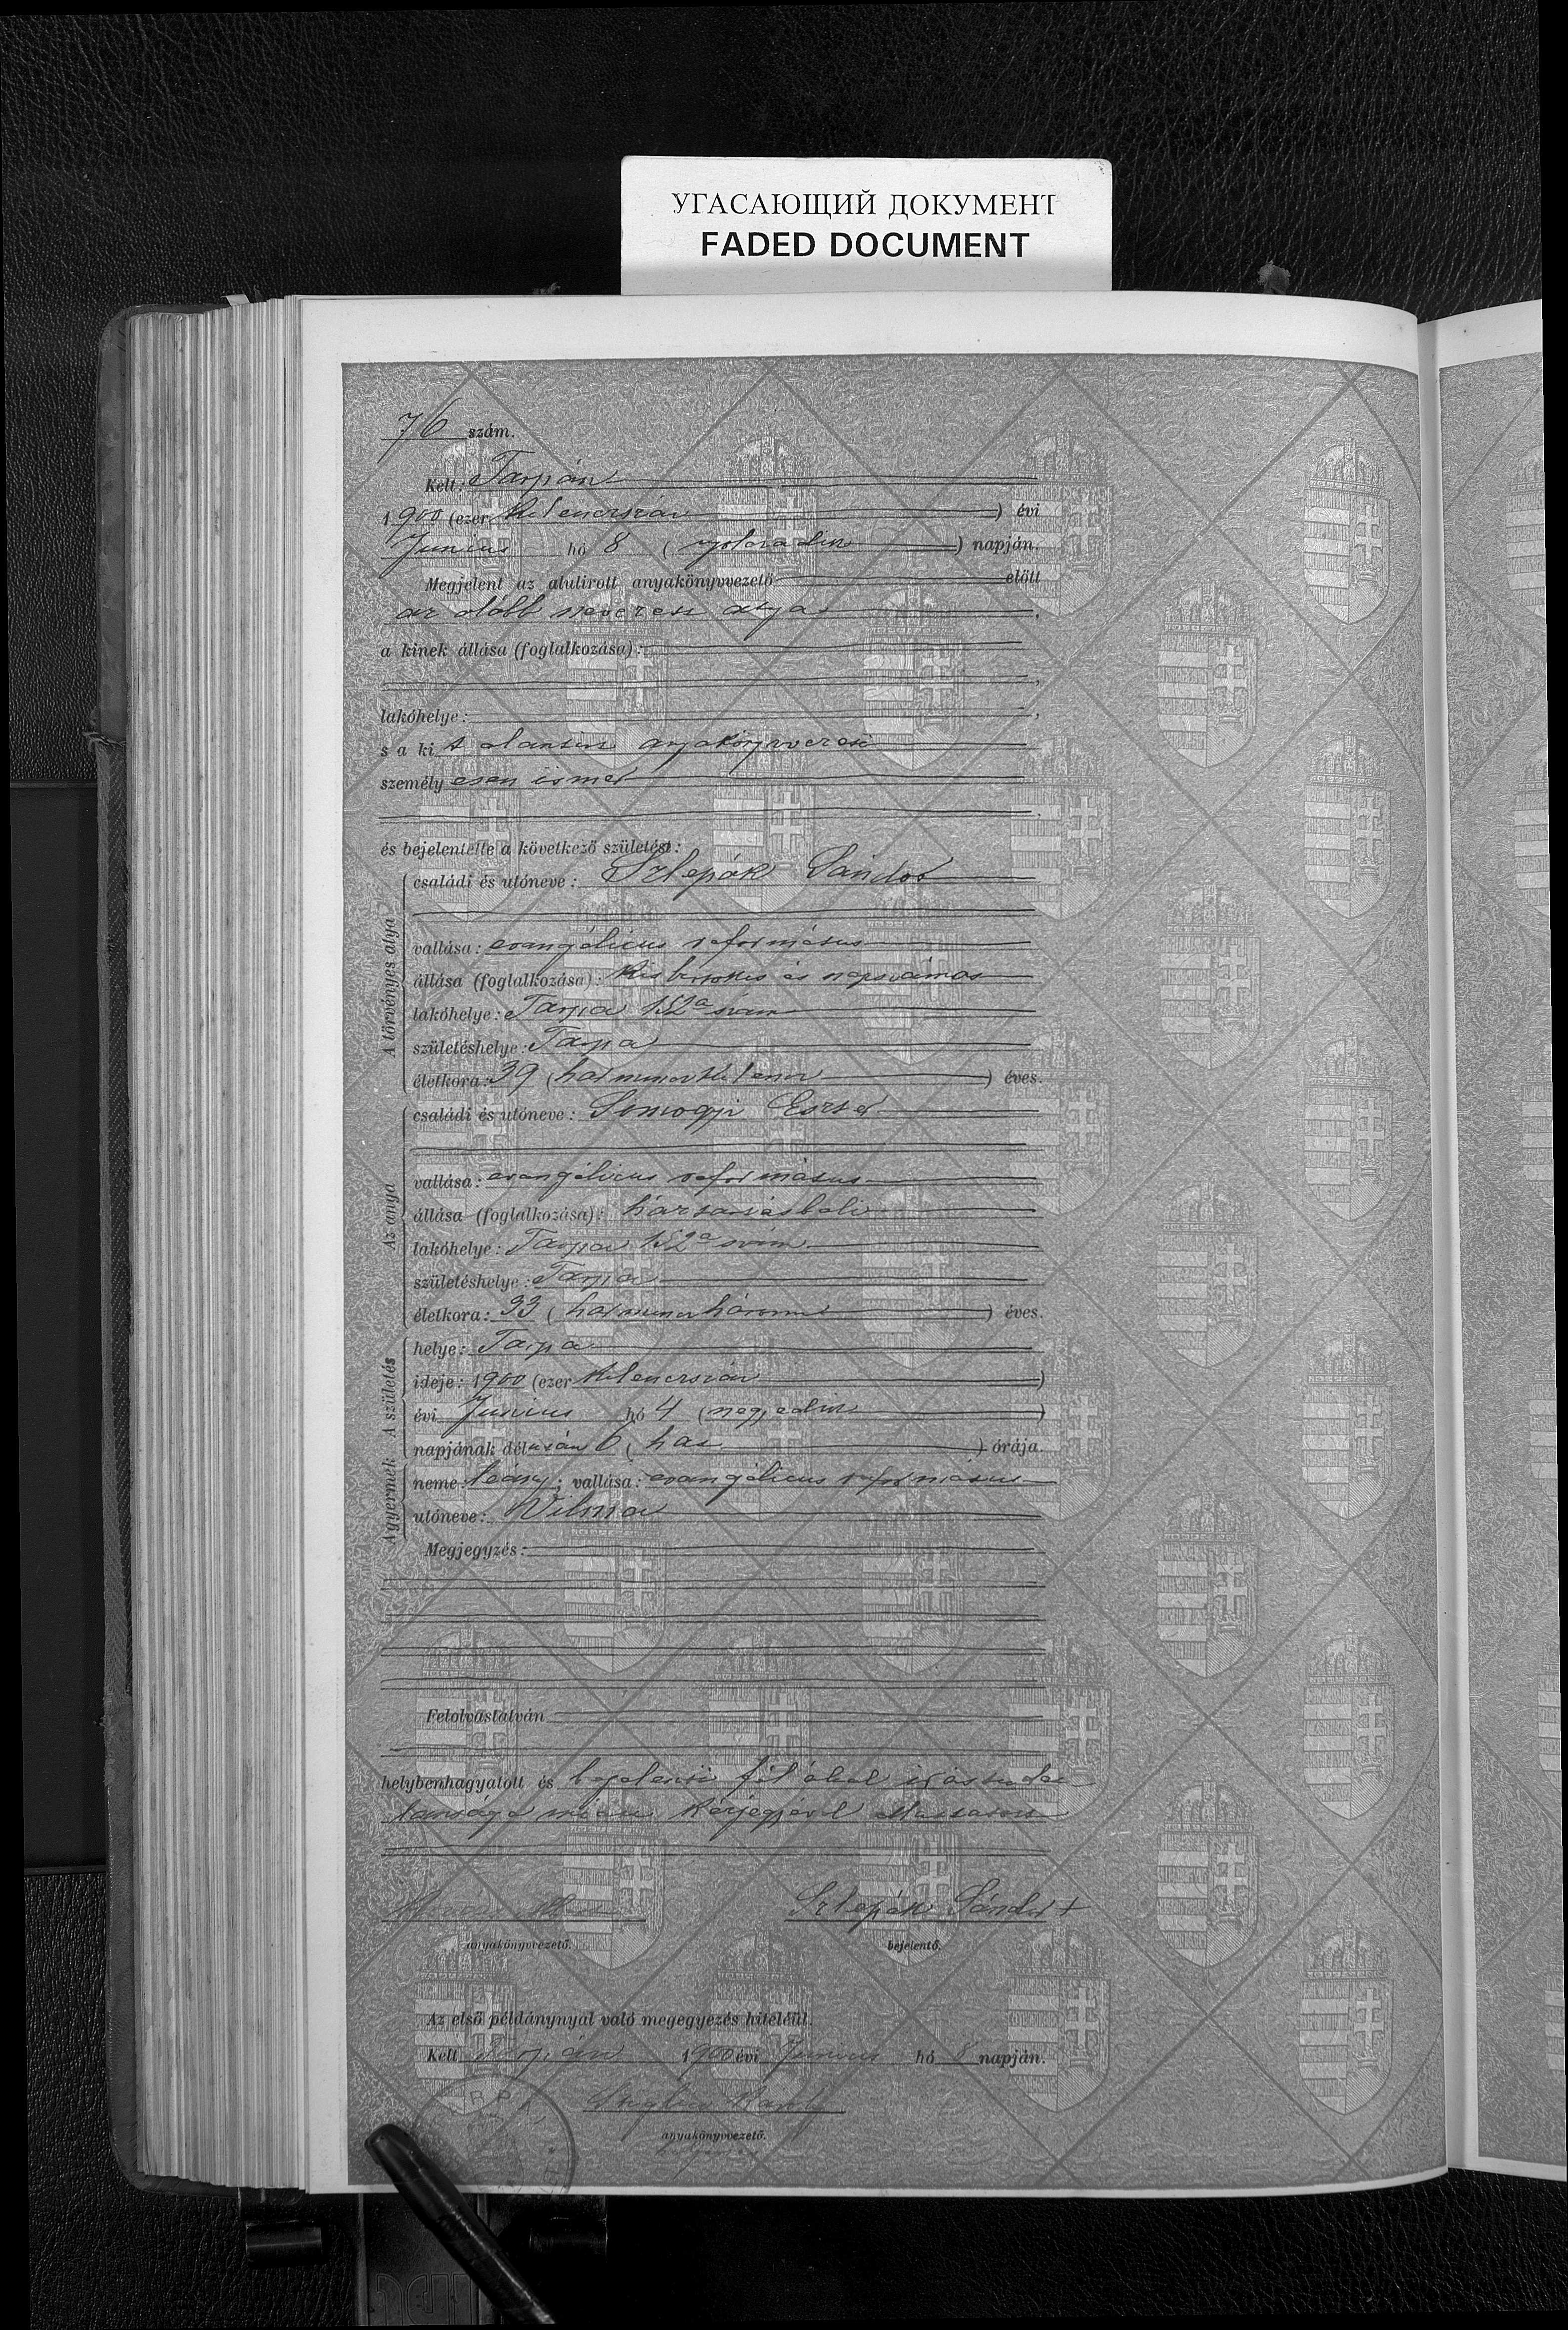 УГАСАЮЩИЙ ДОКУМЕНТ
FADED DOCUMENT
76 szám.
Kelt: Tarpán
1900 (ezer kilenczszáz) évi
Junius hó 8 (nyolczadik) napján.
Megjelent az alulirott anyakönyvvezető előtt
az alább nevezett atya,
a kinek állása (foglalkozása):
lakóhelye:
s a kit alantirt anyakönyvvezető
személyesen ismer
és bejelentette a következő születést:
A törvényes atya
családi és utóneve: Szlepák Sándor
vallása: evangélicus református
állása (foglalkozása): kisbirtokos és napszámos
lakóhelye: Tarpa 152a szám
születéshelye: Tarpa
életkora: 39 (harminczkilencz) éves.
Az anya
családi és utóneve: Somogyi Eszter
vallása: evangélicus református
állása (foglalkozása): háztartásbeli
lakóhelye: Tarpa 152a szám
születéshelye: Tarpa
életkora: 33 (harminczhárom) éves.
A születés
helye: Tarpa
ideje: 1900 (ezer kilenczszáz)
évi Junius hó 4 (negyedik)
napjának délután 6 (hat) órája.
A gyermek
neme: leány; vallása: evangélicus református
utóneve: Vilma
Megjegyzés:
Felolvastatván
helybenhagyatott és bejelentő fél által irástudat-
lansága miatt kézjegyével elláttatott
Szlepák Sándor +
anyakönyvvezető.
bejelentő.
Az első példánynyal való megegyezés hiteléül.
Kelt Tarpán 1900 évi Junius hó 8 napján.
anyakönyvvezető.